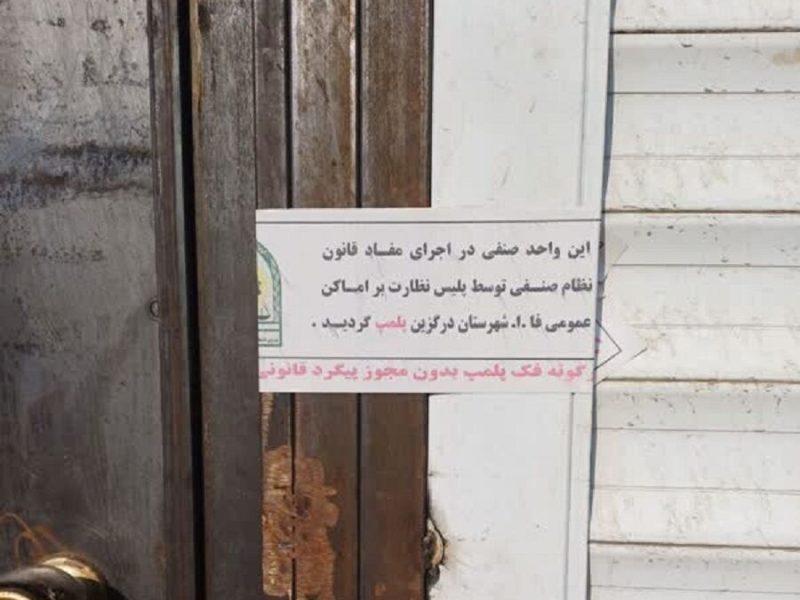 این واحد صنفی در اجرای مفاد قانون
نظام صنفی توسط پلیس نظارت بر اماکن
عمومی فا .ا. شهرستان درگزین پلمپ گردید .
گونه فک پلمپ بدون مجوز پیگرد قانونی